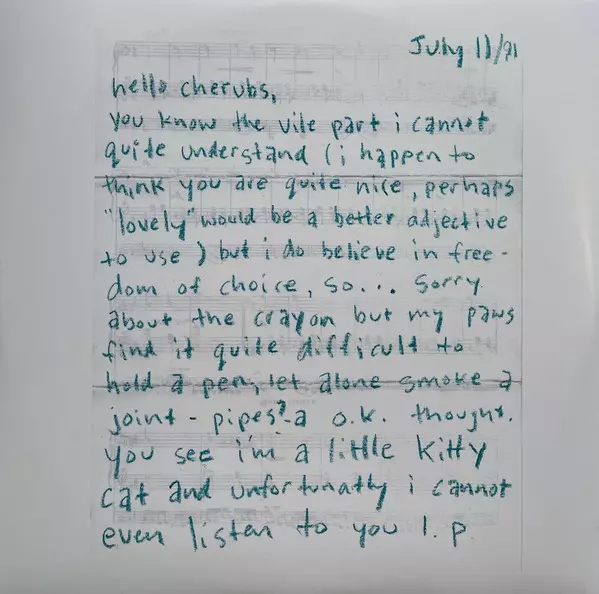 July 11/91
hello cherubs,
you know the vile part i cannot
quite understand (i happen to
think you are quite nice, perhaps
"lovely" would be a better adjective
to use) but i do believe in free-
dom of choice, so... sorry
about the crayon but my paws
find it quite difficult to
hold a pen, let alone smoke a
joint - pipes? - a o.k. thought.
you see i'm a little kitty
cat and unfortunatly i cannot
even listen to you l. p.